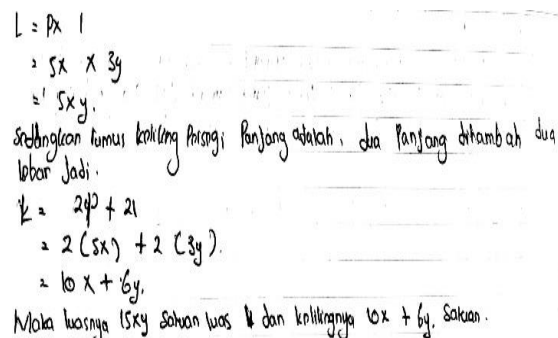 L = p x l
= 5x x 3y
= 15xy.
Sedangkan rumus keliling Persegi Panjang adalah, dua Panjang ditambah dua
lebar Jadi.
K = 2p + 2l
= 2 (5x) + 2 (3y).
= 10x + 6y.
Maka luasnya 15xy satuan luas dan kelilingnya 10x + 6y. Satuan.